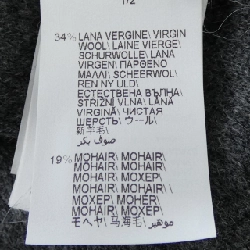 34% LANA VERGINE\ VIRGIN
WOOL\ LAINE VIERGE\
SCHURWOLLE\ LANA
VIRGEN\ ΠΑΡΘΕΝΟ
ΜΑΛΛΙ\ SCHEERWOL\
REN NY ULD\
ЕСТЕСТВЕНА ВЪЛНА\
STRIŽNÍ VLNA\ LÂNA
VIRGINĂ\ ЧИСТАЯ
ШЕРСТЬ\ ウール\
新羊毛\
صوف بكر
19% MOHAIR\ MOHAIR\
MOHAIR\ MOHAIR\
MOHAIR\ ΜΟΧΕΡ\
MOHAIR\ MOHAIR\
МОХЕР\ MOHÉR\
MOHAIR\ МОХЕР\
モヘヤ\ 马海毛\
موهير